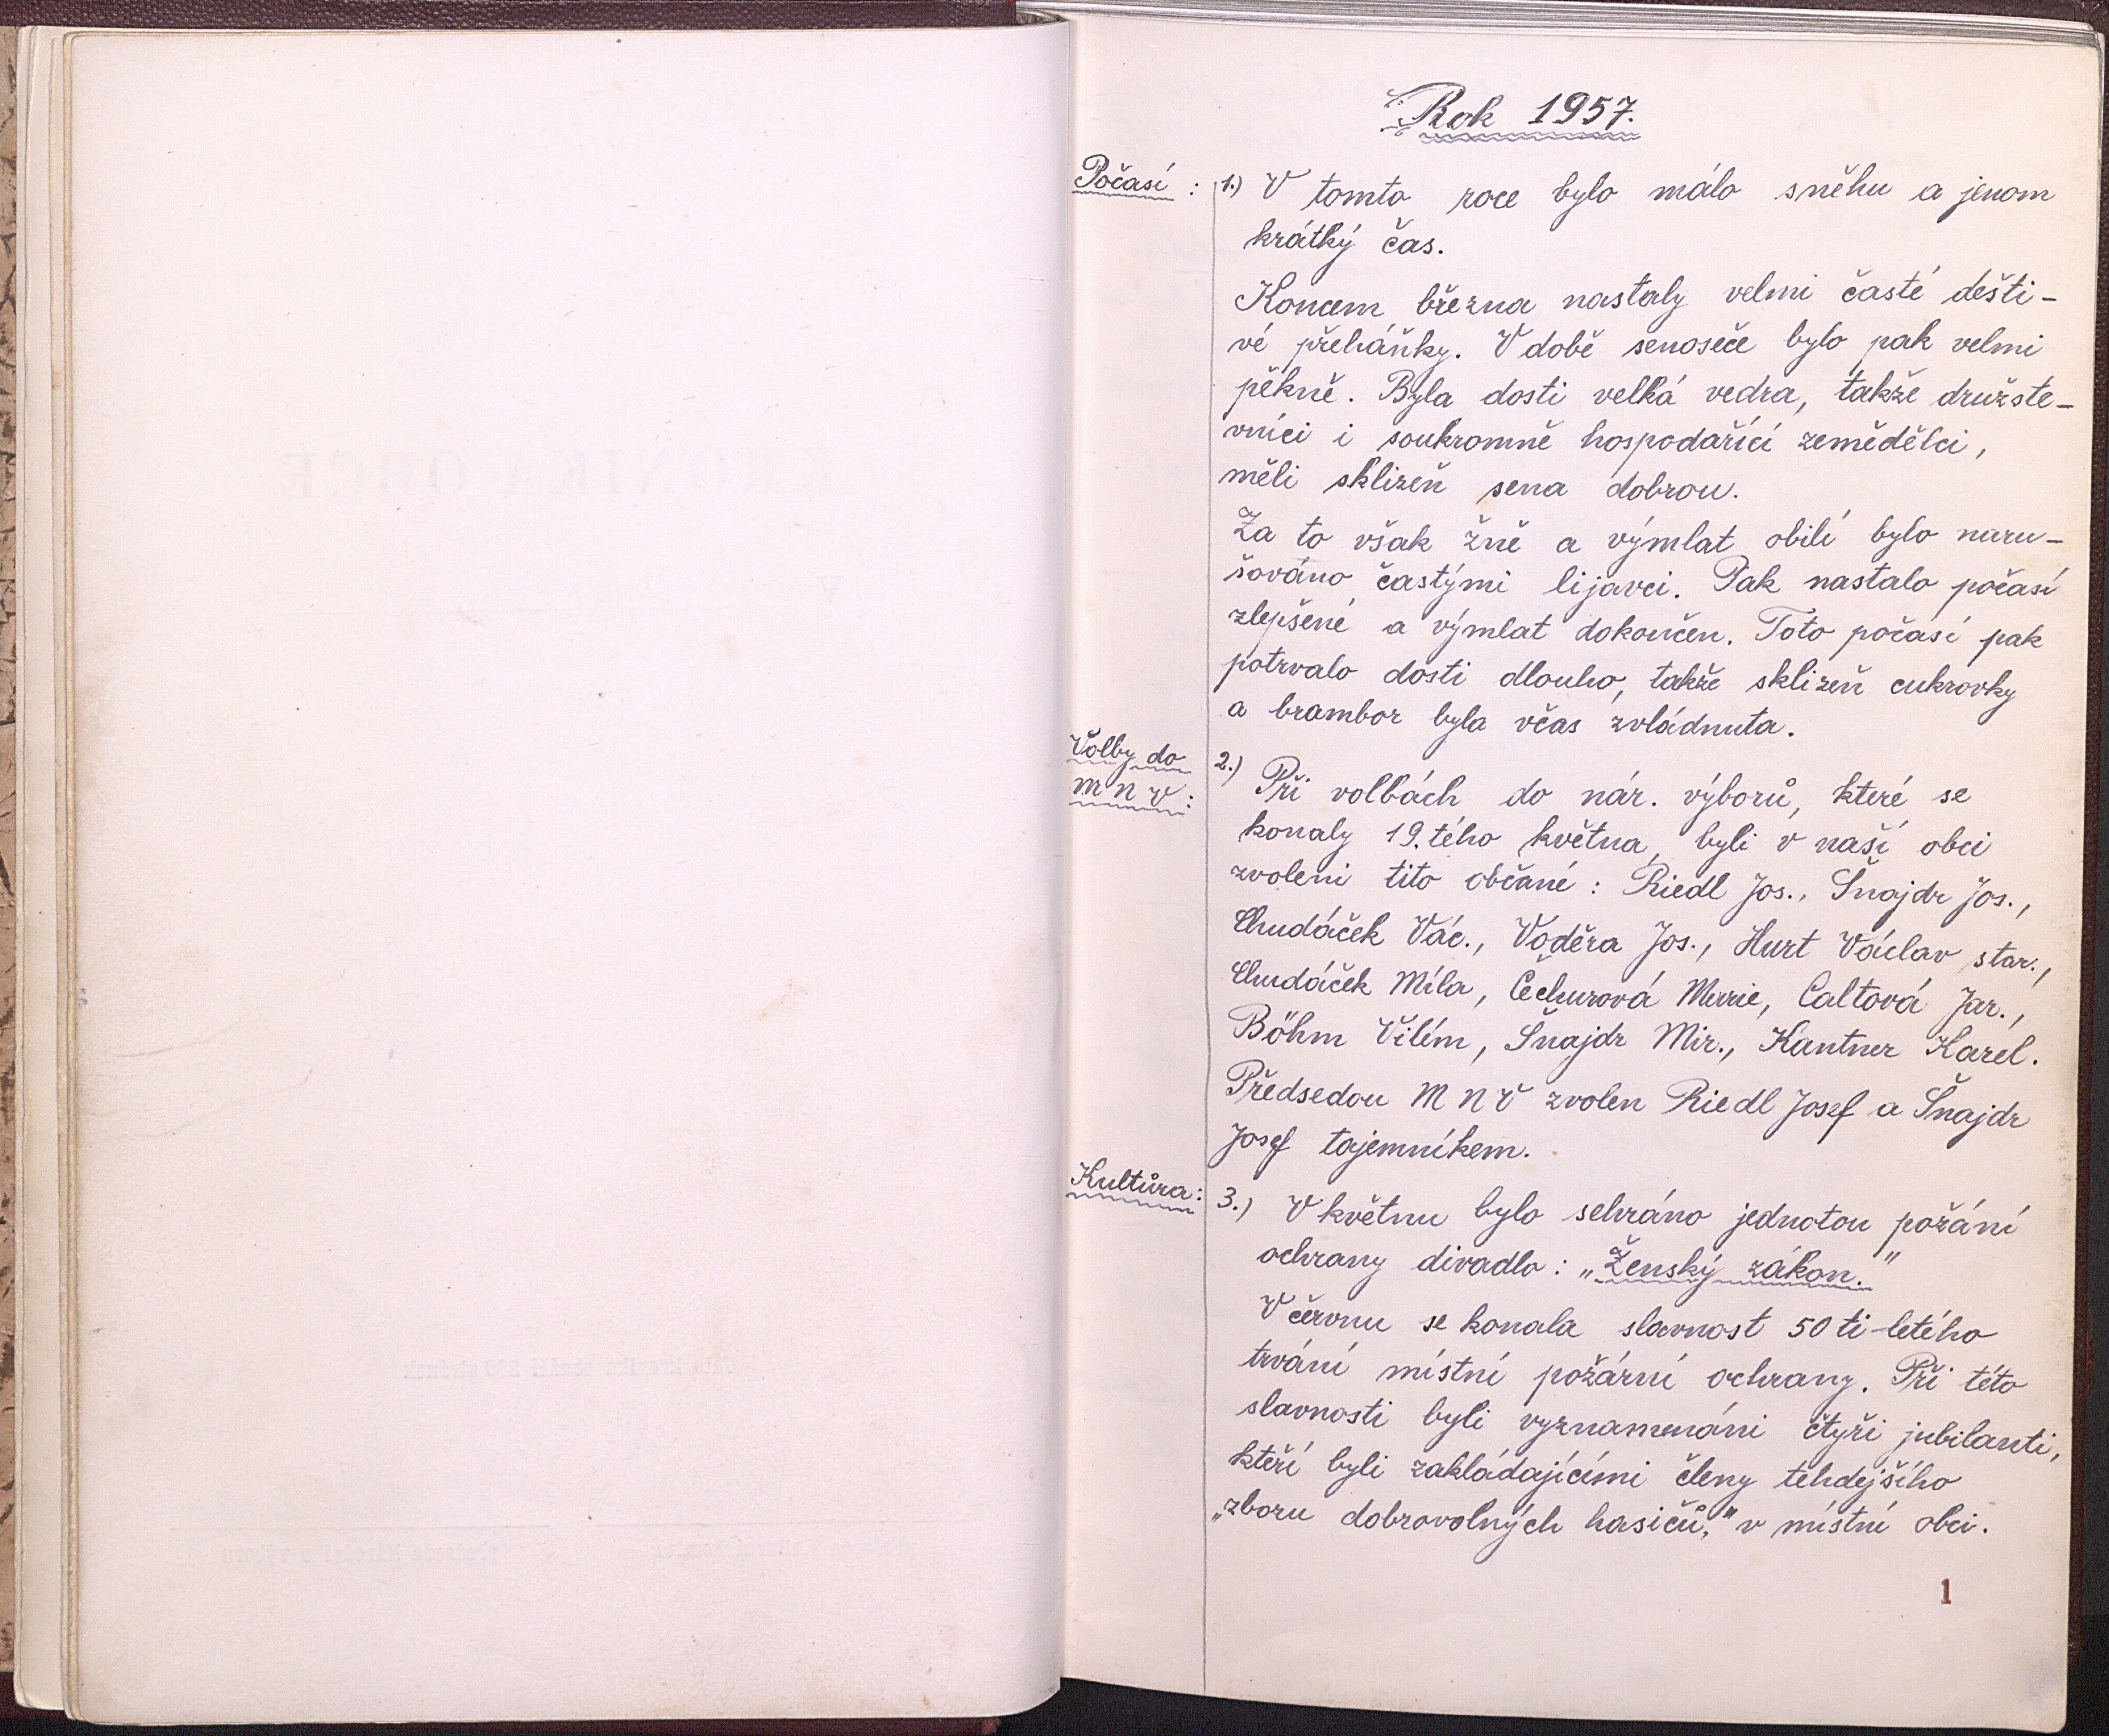 Rok 1957.
Počasí :
1.) V tomto roce bylo málo sněhu a jenom
krátký čas.
Koncem března nastaly velmi časté dešti-
vé přeháňky. V době senoseče bylo pak velmi
pěkně. Byla dosti velká vedra, takže družste-
vníci i soukromně hospodařící zemědělci,
měli sklizeň sena dobrou.
Za to však žně a výmlat obilí bylo naru-
šováno častými lijavci. Pak nastalo počasí
zlepšené a výmlat dokončen. Toto počasí pak
potrvalo dosti dlouho, takže sklizeň cukrovky
a brambor byla včas zvládnuta.
Volby do
M N V :
2.) Při volbách do nár. výborů, které se
konaly 19.tého května, byli v naší obci
zvoleni tito občané : Riedl Jos., Šnajdr Jos.,
Chudáček Vác., Voděra Jos., Hurt Václav star.,
Chudáček Míla, Čechurová Marie, Caltová Jar.,
Böhm Vilém, Šnajdr Mir., Kantner Karel.
Předsedou M N V zvolen Riedl Josef a Šnajdr
Josef tajemníkem.
Kultůra :
3.) V květnu bylo sehráno jednotou požání
ochrany divadlo : „Ženský zákon."
V červnu se konala slavnost 50 ti-letého
trvání místní požární ochrany. Při této
slavnosti byli vyznamenáni čtyři jubilanti,
kteří byli zakládajícími členy tehdejšího
„zboru dobrovolných hasičů," v místní obci.
1